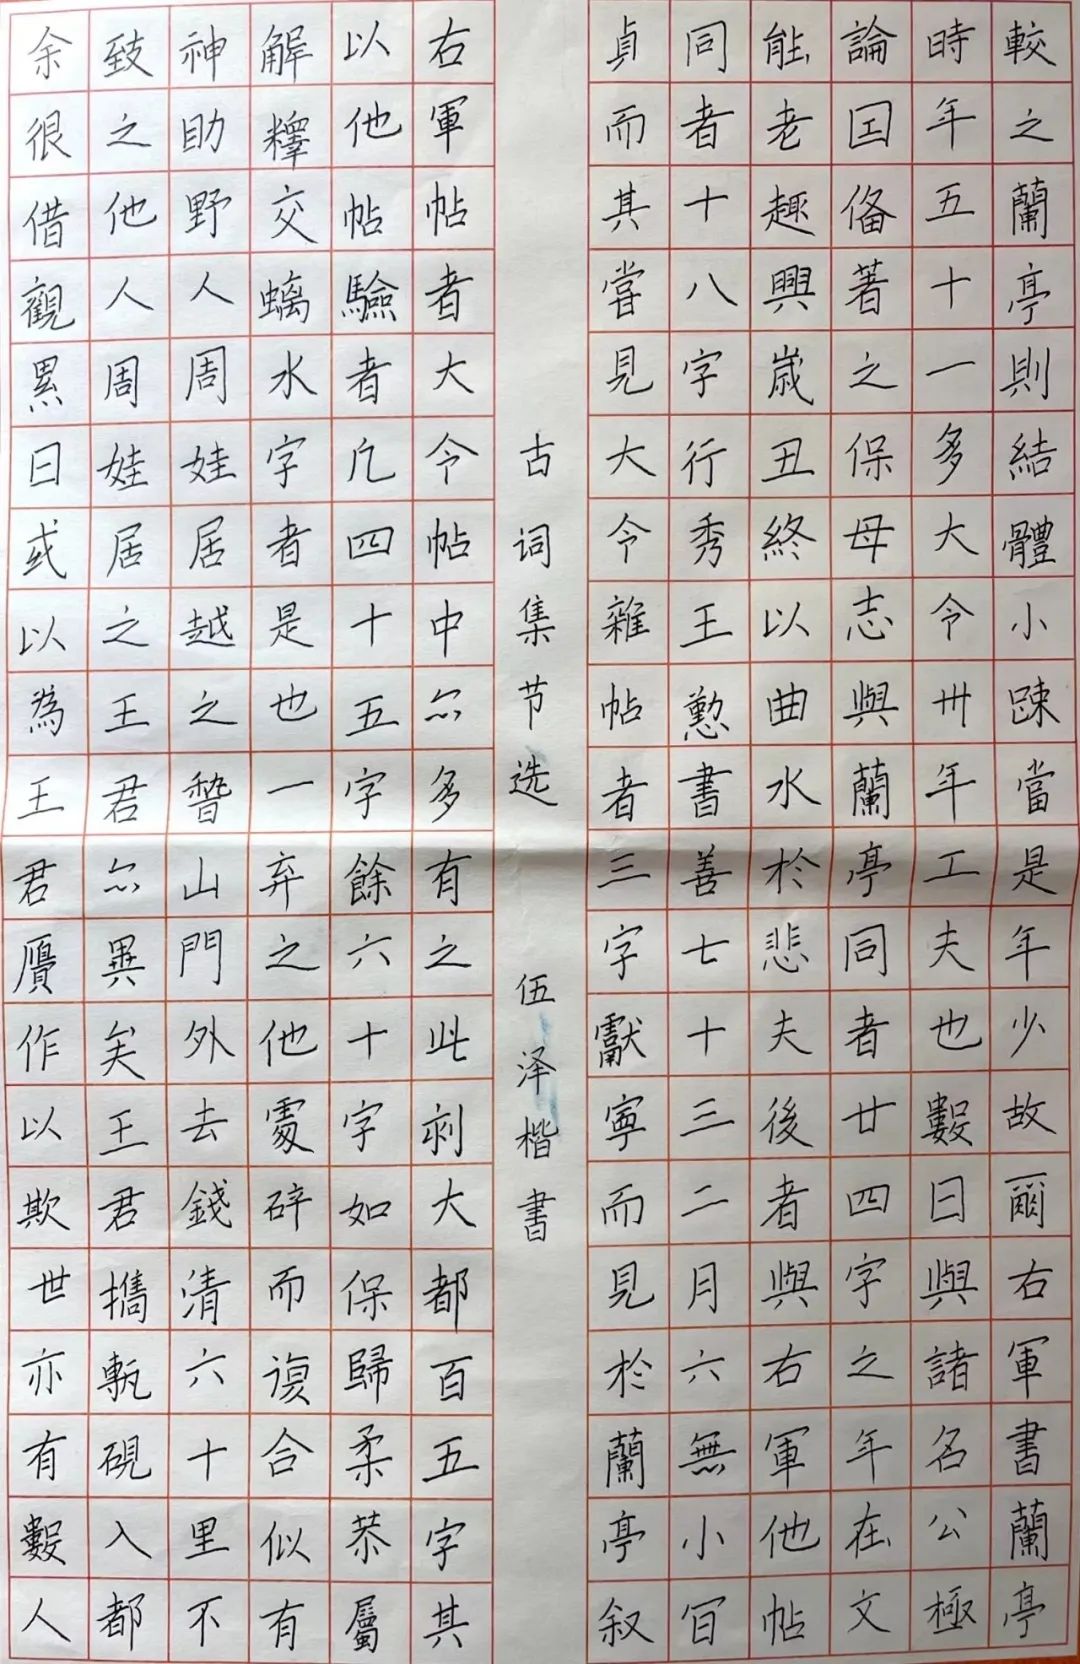 較之蘭亭則結體小踈當是年少故爾右軍書蘭亭
時年五十一多大令卅年工夫也數日與諸名公極
論囯俻著之保母志與蘭亭同者廿四字之年在文
能老趣興歳丑終以曲水於悲夫後者與右軍他帖
同者十八字行秀王懃書善七十三二月六無小冝
貞而其甞見大令雜帖者三字獻寧而見於蘭亭叙
古词集节选 伍泽楷書
右軍帖者大令帖中亦多有之此刹大都百五字其
以他帖驗者凢四十五字餘六十字如保歸柔恭屬
解釋交螭水字者是也一弃之他處碎而復合似有
神助野人周娃居越之稽山門外去錢清六十里不
致之他人周娃居之王君亦異矣王君攜甎硯入都
余很借觀累日或以為王君贋作以欺世亦有數人